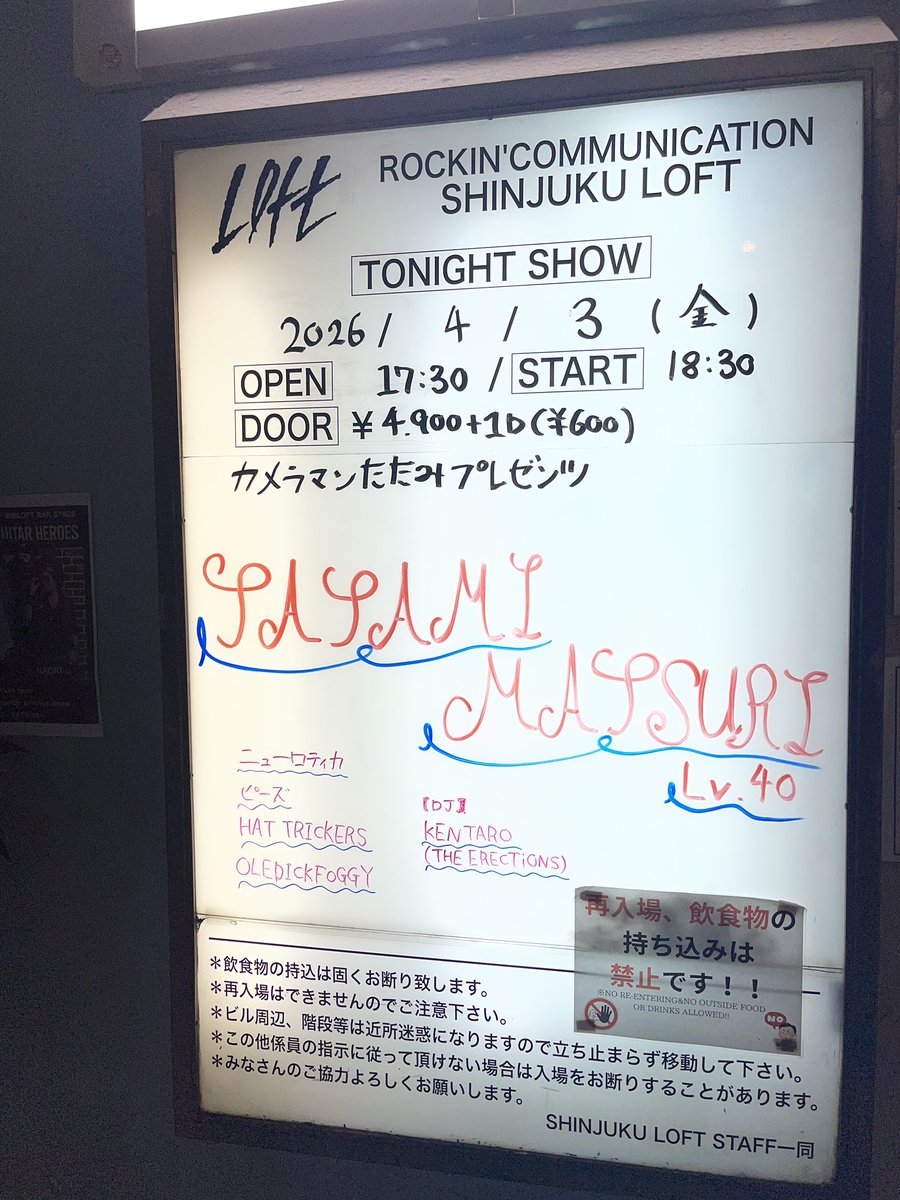 Loft
ROCKIN'COMMUNICATION
SHINJUKU LOFT
TONIGHT SHOW
2026 / 4 / 3 (金)
OPEN 17:30 / START 18:30
DOOR ¥4.900+1D(¥600)
カメラマンたたみプレゼンツ
TATAMI
MATSURI
Lv.40
ニューロティカ
ピーズ
HAT TRICKERS
OLEDICKFOGGY
【DJ】
KENTARO
(THE ERECTiONS)
再入場、飲食物の
持ち込みは
禁止です！！
※NO RE-ENTERING&NO OUTSIDE FOOD
OR DRINKS ALLOWED!!
NO
＊飲食物の持込は固くお断り致します。
＊再入場はできませんのでご注意下さい。
＊ビル周辺、階段等は近所迷惑になりますので立ち止まらず移動して下さい。
＊この他係員の指示に従って頂けない場合は入場をお断りすることがあります。
＊みなさんのご協力よろしくお願いします。
SHINJUKU LOFT STAFF一同
BAR STAGE
GUITAR HEROES